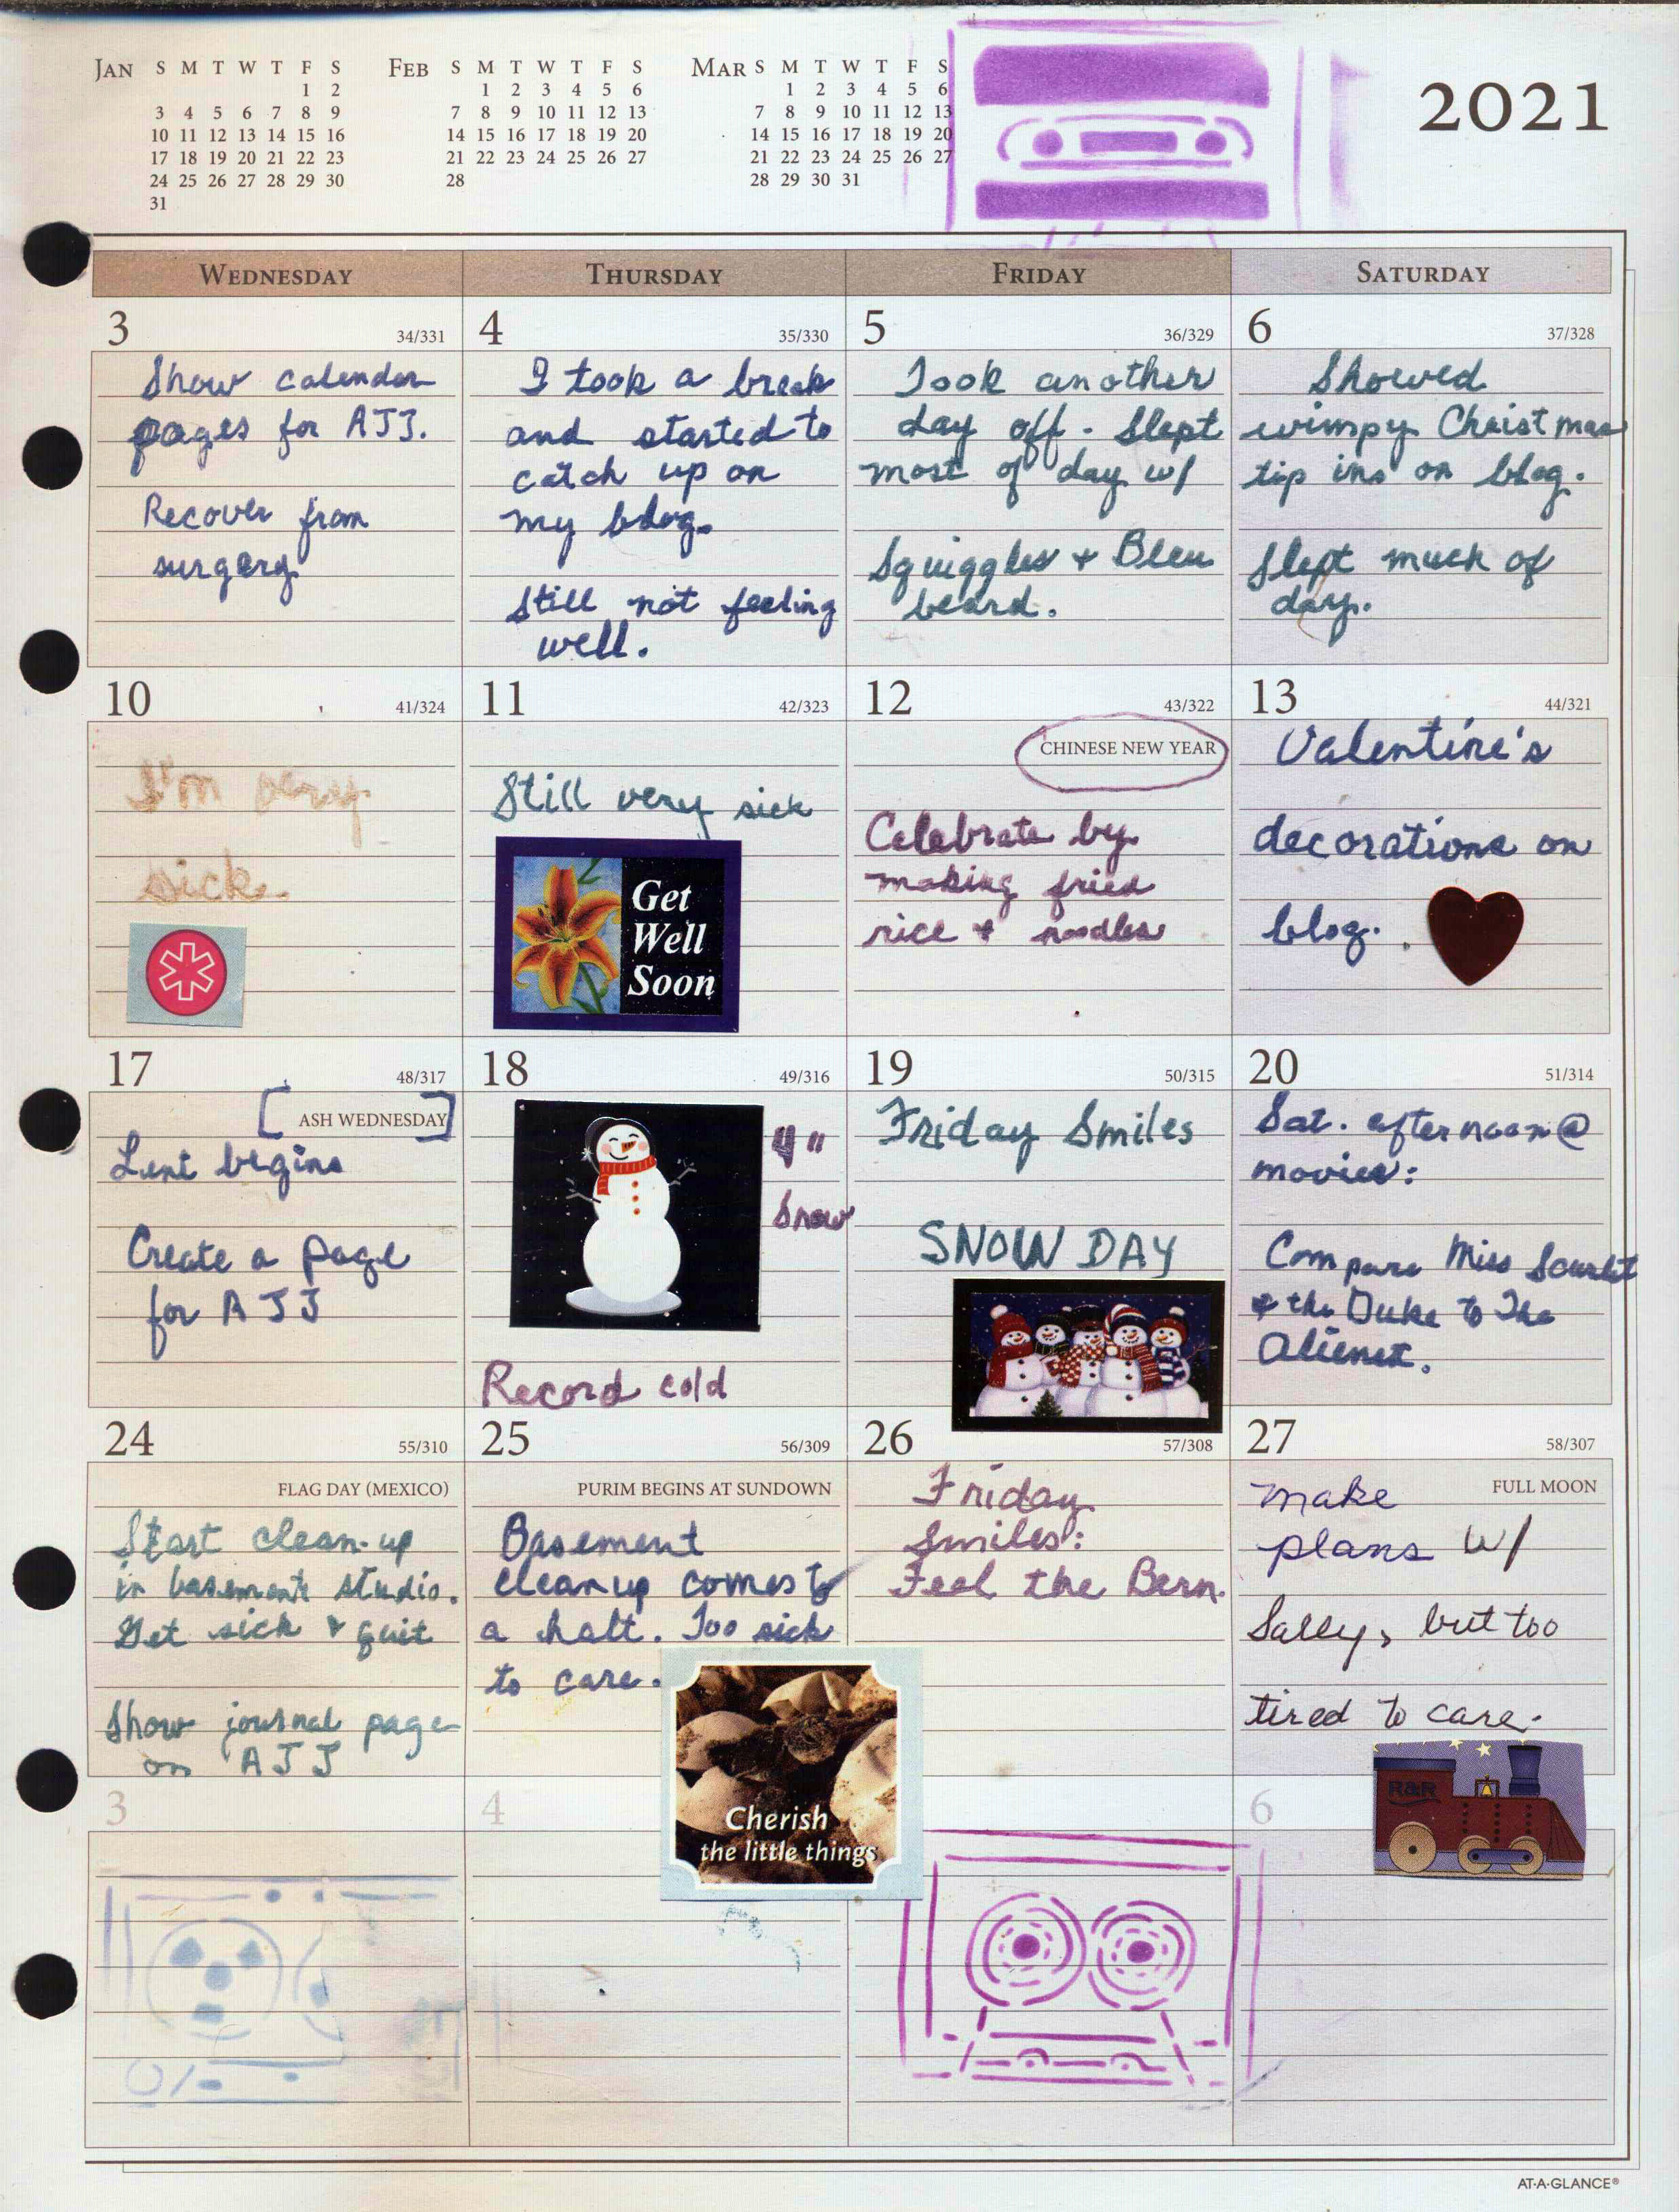 JAN S M T W T F S
1 2
3 4 5 6 7 8 9
10 11 12 13 14 15 16
17 18 19 20 21 22 23
24 25 26 27 28 29 30
31
FEB S M T W T F S
1 2 3 4 5 6
7 8 9 10 11 12 13
14 15 16 17 18 19 20
21 22 23 24 25 26 27
28
MAR S M T W T F S
1 2 3 4 5 6
7 8 9 10 11 12 13
14 15 16 17 18 19 20
21 22 23 24 25 26 27
28 29 30 31
2021
WEDNESDAY THURSDAY FRIDAY SATURDAY
3 34/331
Show calender
pages for AJJ.
Recover from
surgery
4 35/330
I took a break
and started to
catch up on
my blog.
Still not feeling
well.
5 36/329
Took another
day off. Slept
most of day w/
Squiggles + Bleu
beard.
6 37/328
Showed
wimpy Christmas
tip ins on blog.
Slept much of
day.
10 41/324
I'm very
sick.
11 42/323
Still very sick
Get
Well
Soon
12 43/322
CHINESE NEW YEAR
Celebrate by
making fried
rice + noodles
13 44/321
Valentine's
decorations on
blog.
17 48/317
ASH WEDNESDAY
Lent begins
Create a page
for AJJ
18 49/316
4"
Snow
Record cold
19 50/315
Friday Smiles
SNOW DAY
20 51/314
Sat. afternoon @
movies:
Compare Miss Scarlet
& the Duke to The
Alienist.
24 55/310
FLAG DAY (MEXICO)
Start clean-up
in basement studio.
Get sick & quit
Show journal page
on AJJ
25 56/309
PURIM BEGINS AT SUNDOWN
Basement
cleanup comes to
a halt. Too sick
to care.
Cherish
the little things
26 57/308
Friday
Smiles:
Feel the Bern.
27 58/307
FULL MOON
make
plans w/
Sally, but too
tired to care.
R&R
3
4
6
AT-A-GLANCE®